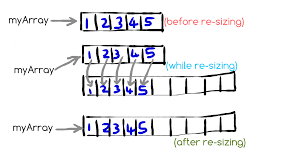 myArray 1 2 3 4 5 (before re-sizing)
1 2 3 4 5
myArray (while re-sizing)
1 2 3 4 5
myArray 1 2 3 4 5
(after re-sizing)